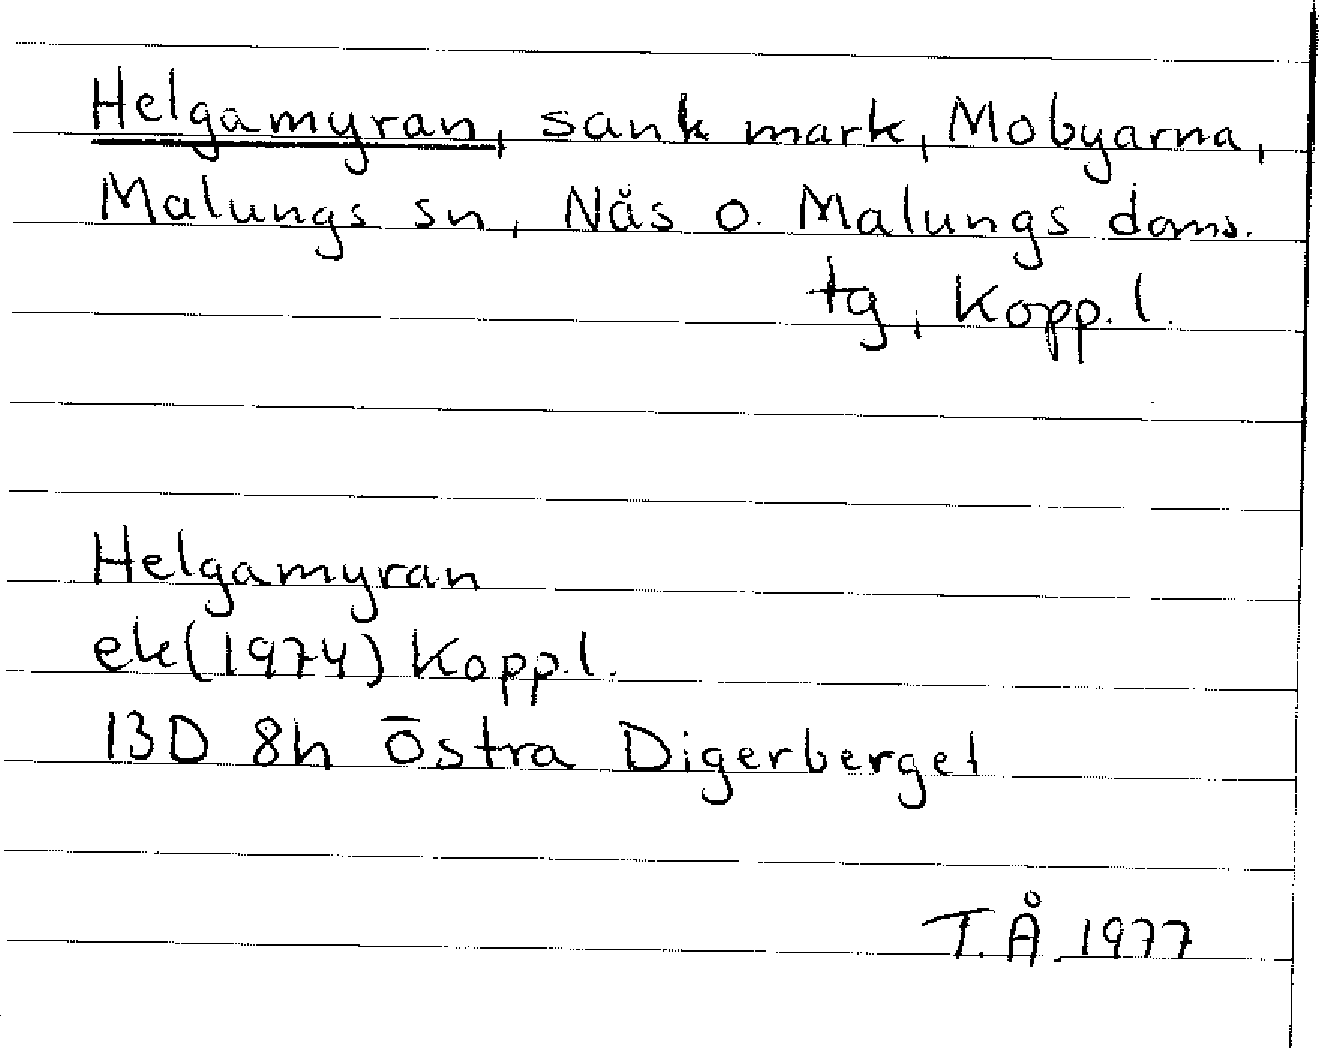 Helgamyran, sank mark, Mobyarna,
Malungs sn, Näs o. Malungs doms.
tg, Kopp.l.
Helgamyran
ek(1974) Kopp.l.
13D 8h Östra Digerberget
T.Å 1977